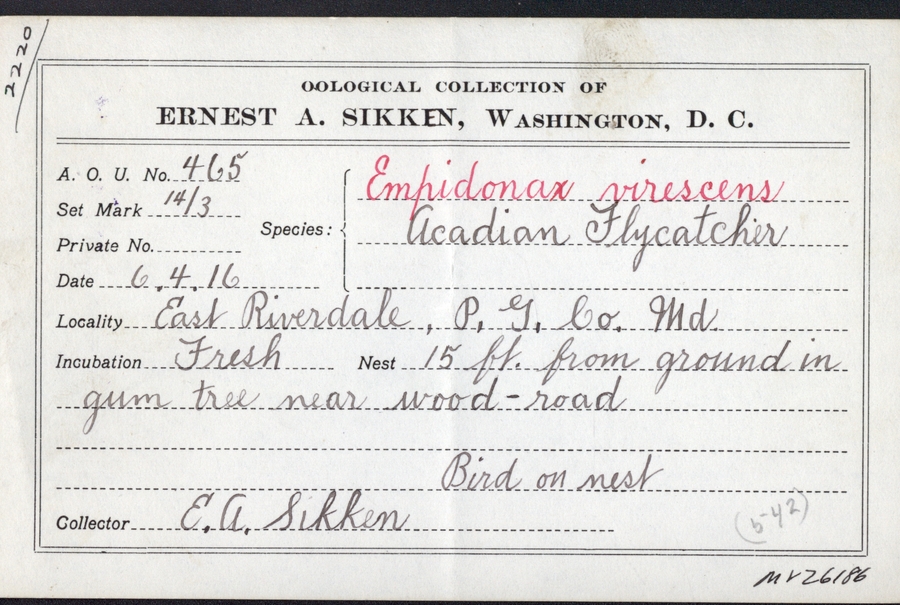 2220
OOLOGICAL COLLECTION OF
ERNEST A. SIKKEN, WASHINGTON, D. C.
A. O. U. No. 465
Set Mark 14/3
Private No.
Date 6.4.16
Species: Empidonax virescens
Acadian Flycatcher
Locality East Riverdale, P. G. Co. Md.
Incubation Fresh Nest 15 ft. from ground in
gum tree near wood-road
Bird on nest
Collector E. A. Sikken
(5-42)
MVZ6186